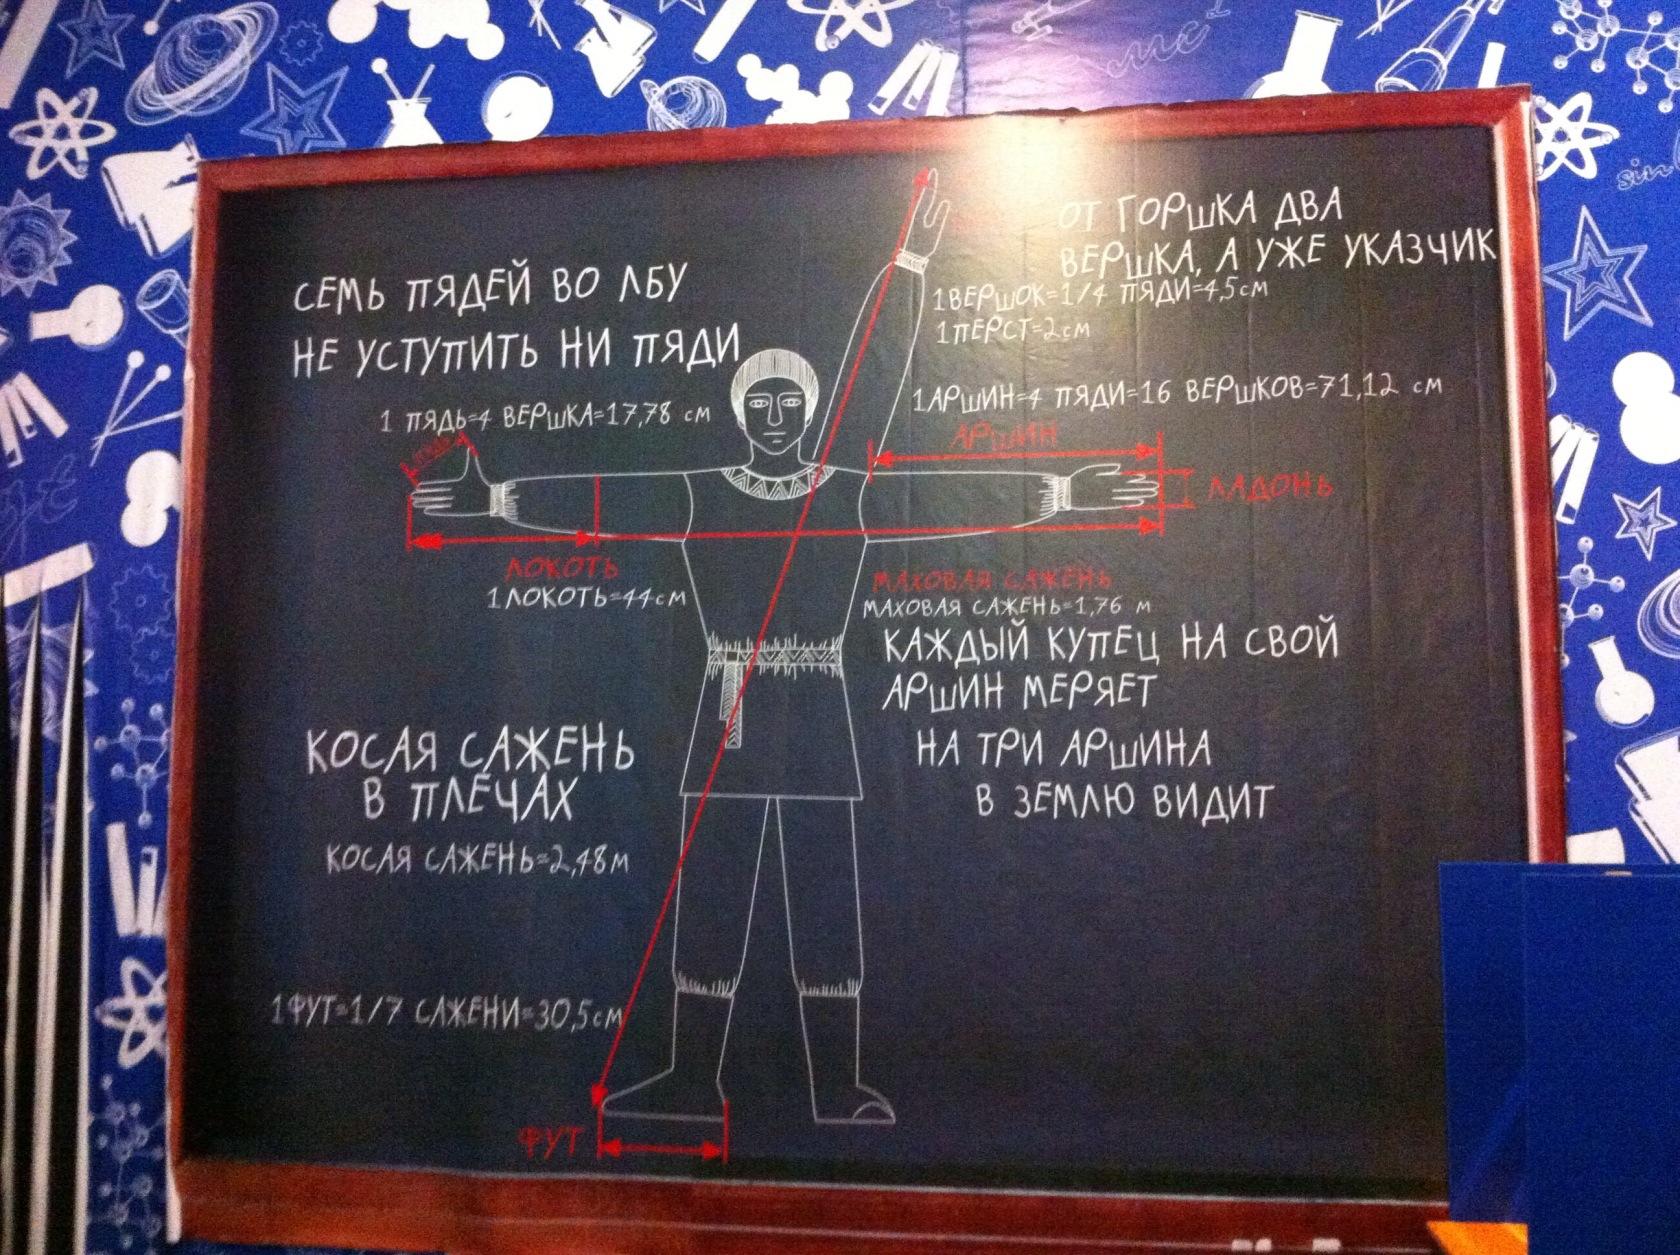 СЕМЬ ПЯДЕЙ ВО ЛБУ
НЕ УСТУПИТЬ НИ ПЯДИ
1 ПЯДЬ=4 ВЕРШКА=17,78 см
ОТ ГОРШКА ДВА
ВЕРШКА, А УЖЕ УКАЗЧИК
1ВЕРШОК=1/4 ПЯДИ=4,5см
1ПЕРСТ=2см
1АРШИН=4 ПЯДИ=16 ВЕРШКОВ=71,12 см
АРШИН
ЛАДОНЬ
ЛОКОТЬ
1ЛОКОТЬ=44см
МАХОВАЯ САЖЕНЬ
МАХОВАЯ САЖЕНЬ=1,76 м
КАЖДЫЙ КУПЕЦ НА СВОЙ
АРШИН МЕРЯЕТ
НА ТРИ АРШИНА
В ЗЕМЛЮ ВИДИТ
КОСАЯ САЖЕНЬ
В ПЛЕЧАХ
КОСАЯ САЖЕНЬ=2,48м
1ФУТ=1/7 САЖЕНИ=30,5см
ФУТ
sin